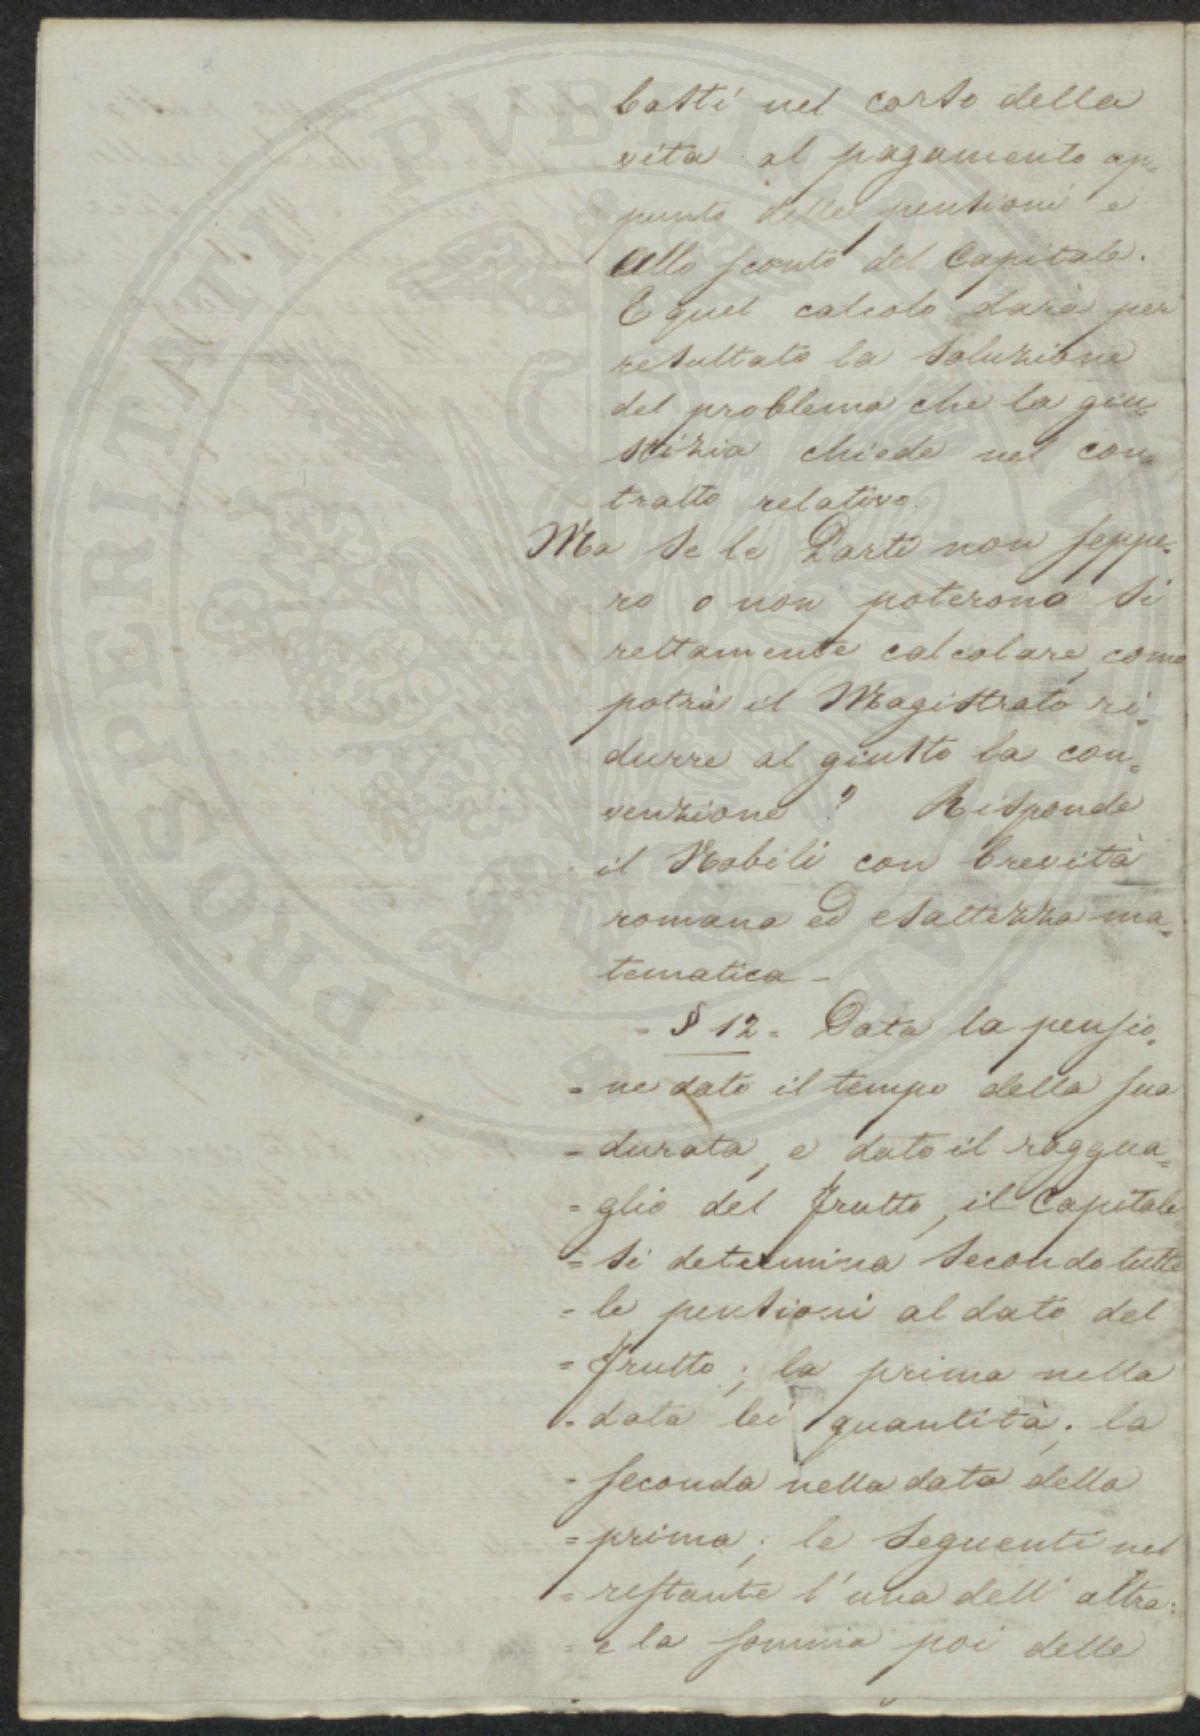 basti nel corso della
vita al pagamento ap=
punto delle pensioni e
allo sconto del Capitale.
E quel calcolo darà per
resultato la soluzione
del problema che la giu=
stizia chiede nel con=
tratto relativo.
Ma se le Parti non seppe=
ro o non poterono si
rettamente calcolare, come
potrà il Magistrato ri=
durre al giusto la con=
venzione? Risponde
il Nobili con brevità
romana ed esattezza ma=
tematica -
= § 12 = Data la pensio=
= ne dato il tempo della sua
= durata, e dato il raggua=
= glio del frutto, il Capitale
= si determina secondo tutte
= le pensioni al dato del
= frutto; la prima nella
= data lei quantità; la
= seconda nella data della
= prima; le seguenti nel
= restante l'una dell'altra:
= e la somma poi delle
PROSPERITATI PVBLICAE